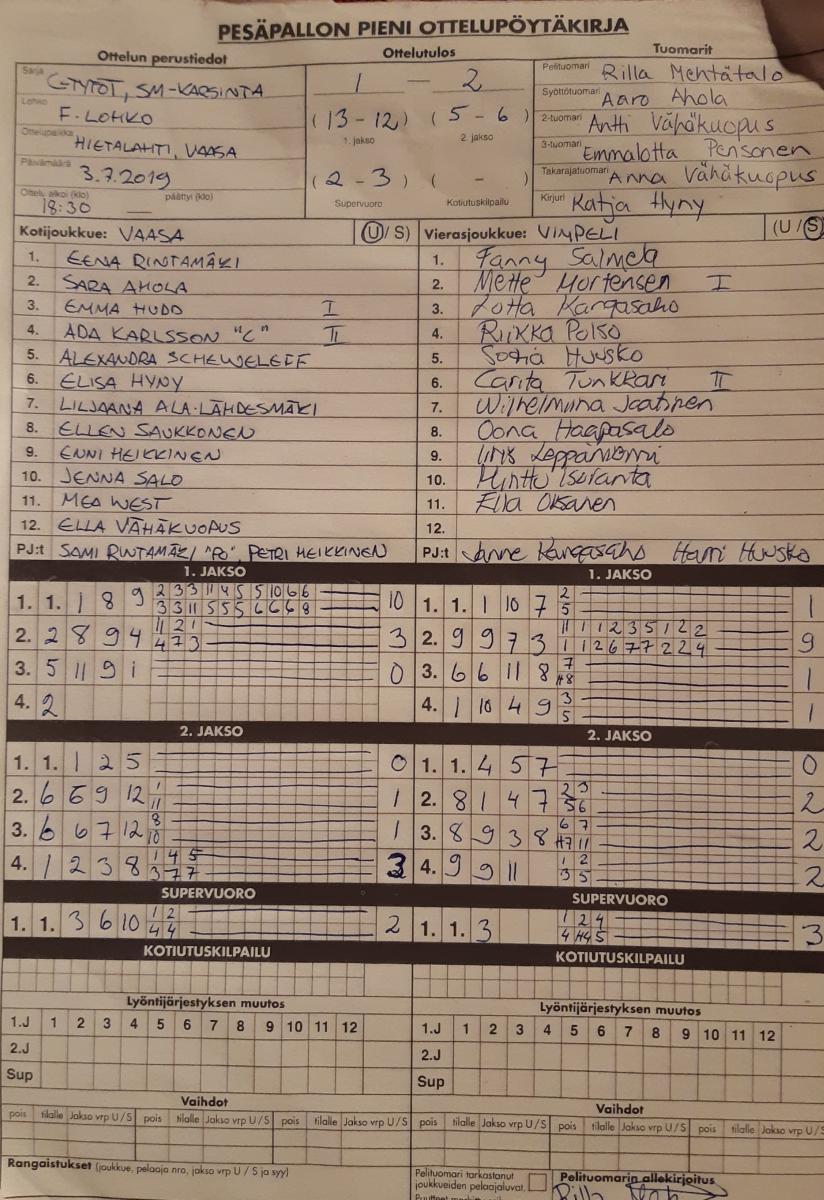 PESÄPALLON PIENI OTTELUPÖYTÄKIRJA
Ottelun perustiedot
Sarja C-TYTÖT, SM-KARSINTA
Lohko F-LOHKO
Ottelupaikka HIETALAHTI, VAASA
Päivämäärä 3.7.2019
Ottelu alkoi (klo) päättyi (klo)
18:30 —
Ottelutulos
1 — 2
(13 - 12) (5 - 6)
1. jakso 2. jakso
(2 - 3) ( - )
Supervuoro Kotiutuskilpailu
Tuomarit
Pelituomari Rilla Mehtätalo
Syöttötuomari Aaro Ahola
2-tuomari Antti Vähäkuopus
3-tuomari Emmalotta Pensonen
Takarajatuomari Anna Vähäkuopus
Kirjuri Katja Hyny
Kotijoukkue: VAASA (U/S)
1. EENA RINTAMÄKI
2. SARA AHOLA
3. EMMA HUDD I
4. ADA KARLSSON "C" II
5. ALEXANDRA SCHEWELEFF
6. ELISA HYNY
7. LILJAANA ALA-LÄHDESMÄKI
8. ELLEN SAUKKONEN
9. ENNI HEIKKINEN
10. JENNA SALO
11. MEA WEST
12. ELLA VÄHÄKUOPUS
PJ:t SAMI RINTAMÄKI "PO", PETRI HEIKKINEN
Vierasjoukkue: VIMPELI (U/S)
1. Fanny Salmela
2. Mette Mortensen I
3. Lotta Kangasaho
4. Riikka Polso
5. Sofia Huusko
6. Carita Tunkkari II
7. Wilhelmiina Jaatinen
8. Oona Haapasalo
9. Iiris Leppäniemi
10. Minttu Isoranta
11. Ella Oksanen
12.
PJ:t Janne Kangasaho Harri Huusko
1. JAKSO
1. 1. 1 8 9 2 3 3 11 4 5 5 10 6 6 10
3 3 11 5 5 5 6 6 6 8
2. 2 8 9 4 11 2 1 3
4 7 3
3. 5 11 9 1 0
4. 2
1. JAKSO
1. 1. 1 10 7 2 1
5
2. 9 9 7 3 11 1 1 2 3 5 1 2 2 9
1 1 2 6 7 7 2 2 4
3. 6 6 11 8 7 1
H8
4. 1 10 4 9 3 1
5
2. JAKSO
1. 1. 1 2 5 0
2. 6 6 9 12 1 1
11
3. 6 6 7 12 8 1
10
4. 1 2 3 8 1 4 5 3
3 7 7
2. JAKSO
1. 1. 4 5 7 0
2. 8 1 4 7 2 3 2
5 6
3. 8 9 3 8 6 7 2
H7 11
4. 9 9 11 1 2 2
3 5
SUPERVUORO
1. 1. 3 6 10 1 2 2
4 4
SUPERVUORO
1. 1. 3 1 2 4 3
4 H4 5
KOTIUTUSKILPAILU
KOTIUTUSKILPAILU
Lyöntijärjestyksen muutos
1.J 1 2 3 4 5 6 7 8 9 10 11 12
2.J
Sup
Lyöntijärjestyksen muutos
1.J 1 2 3 4 5 6 7 8 9 10 11 12
2.J
Sup
Vaihdot
pois tilalle Jakso vrp U / S pois tilalle Jakso vrp U / S pois tilalle Jakso vrp U / S
Vaihdot
pois tilalle Jakso vrp U / S pois tilalle Jakso vrp U / S pois tilalle Jakso vrp U / S
Rangaistukset (joukkue, pelaaja nro, jakso vrp U / S ja syy)
Pelituomari tarkastanut
joukkueiden pelaajaluvat.
Pelituomarin allekirjoitus